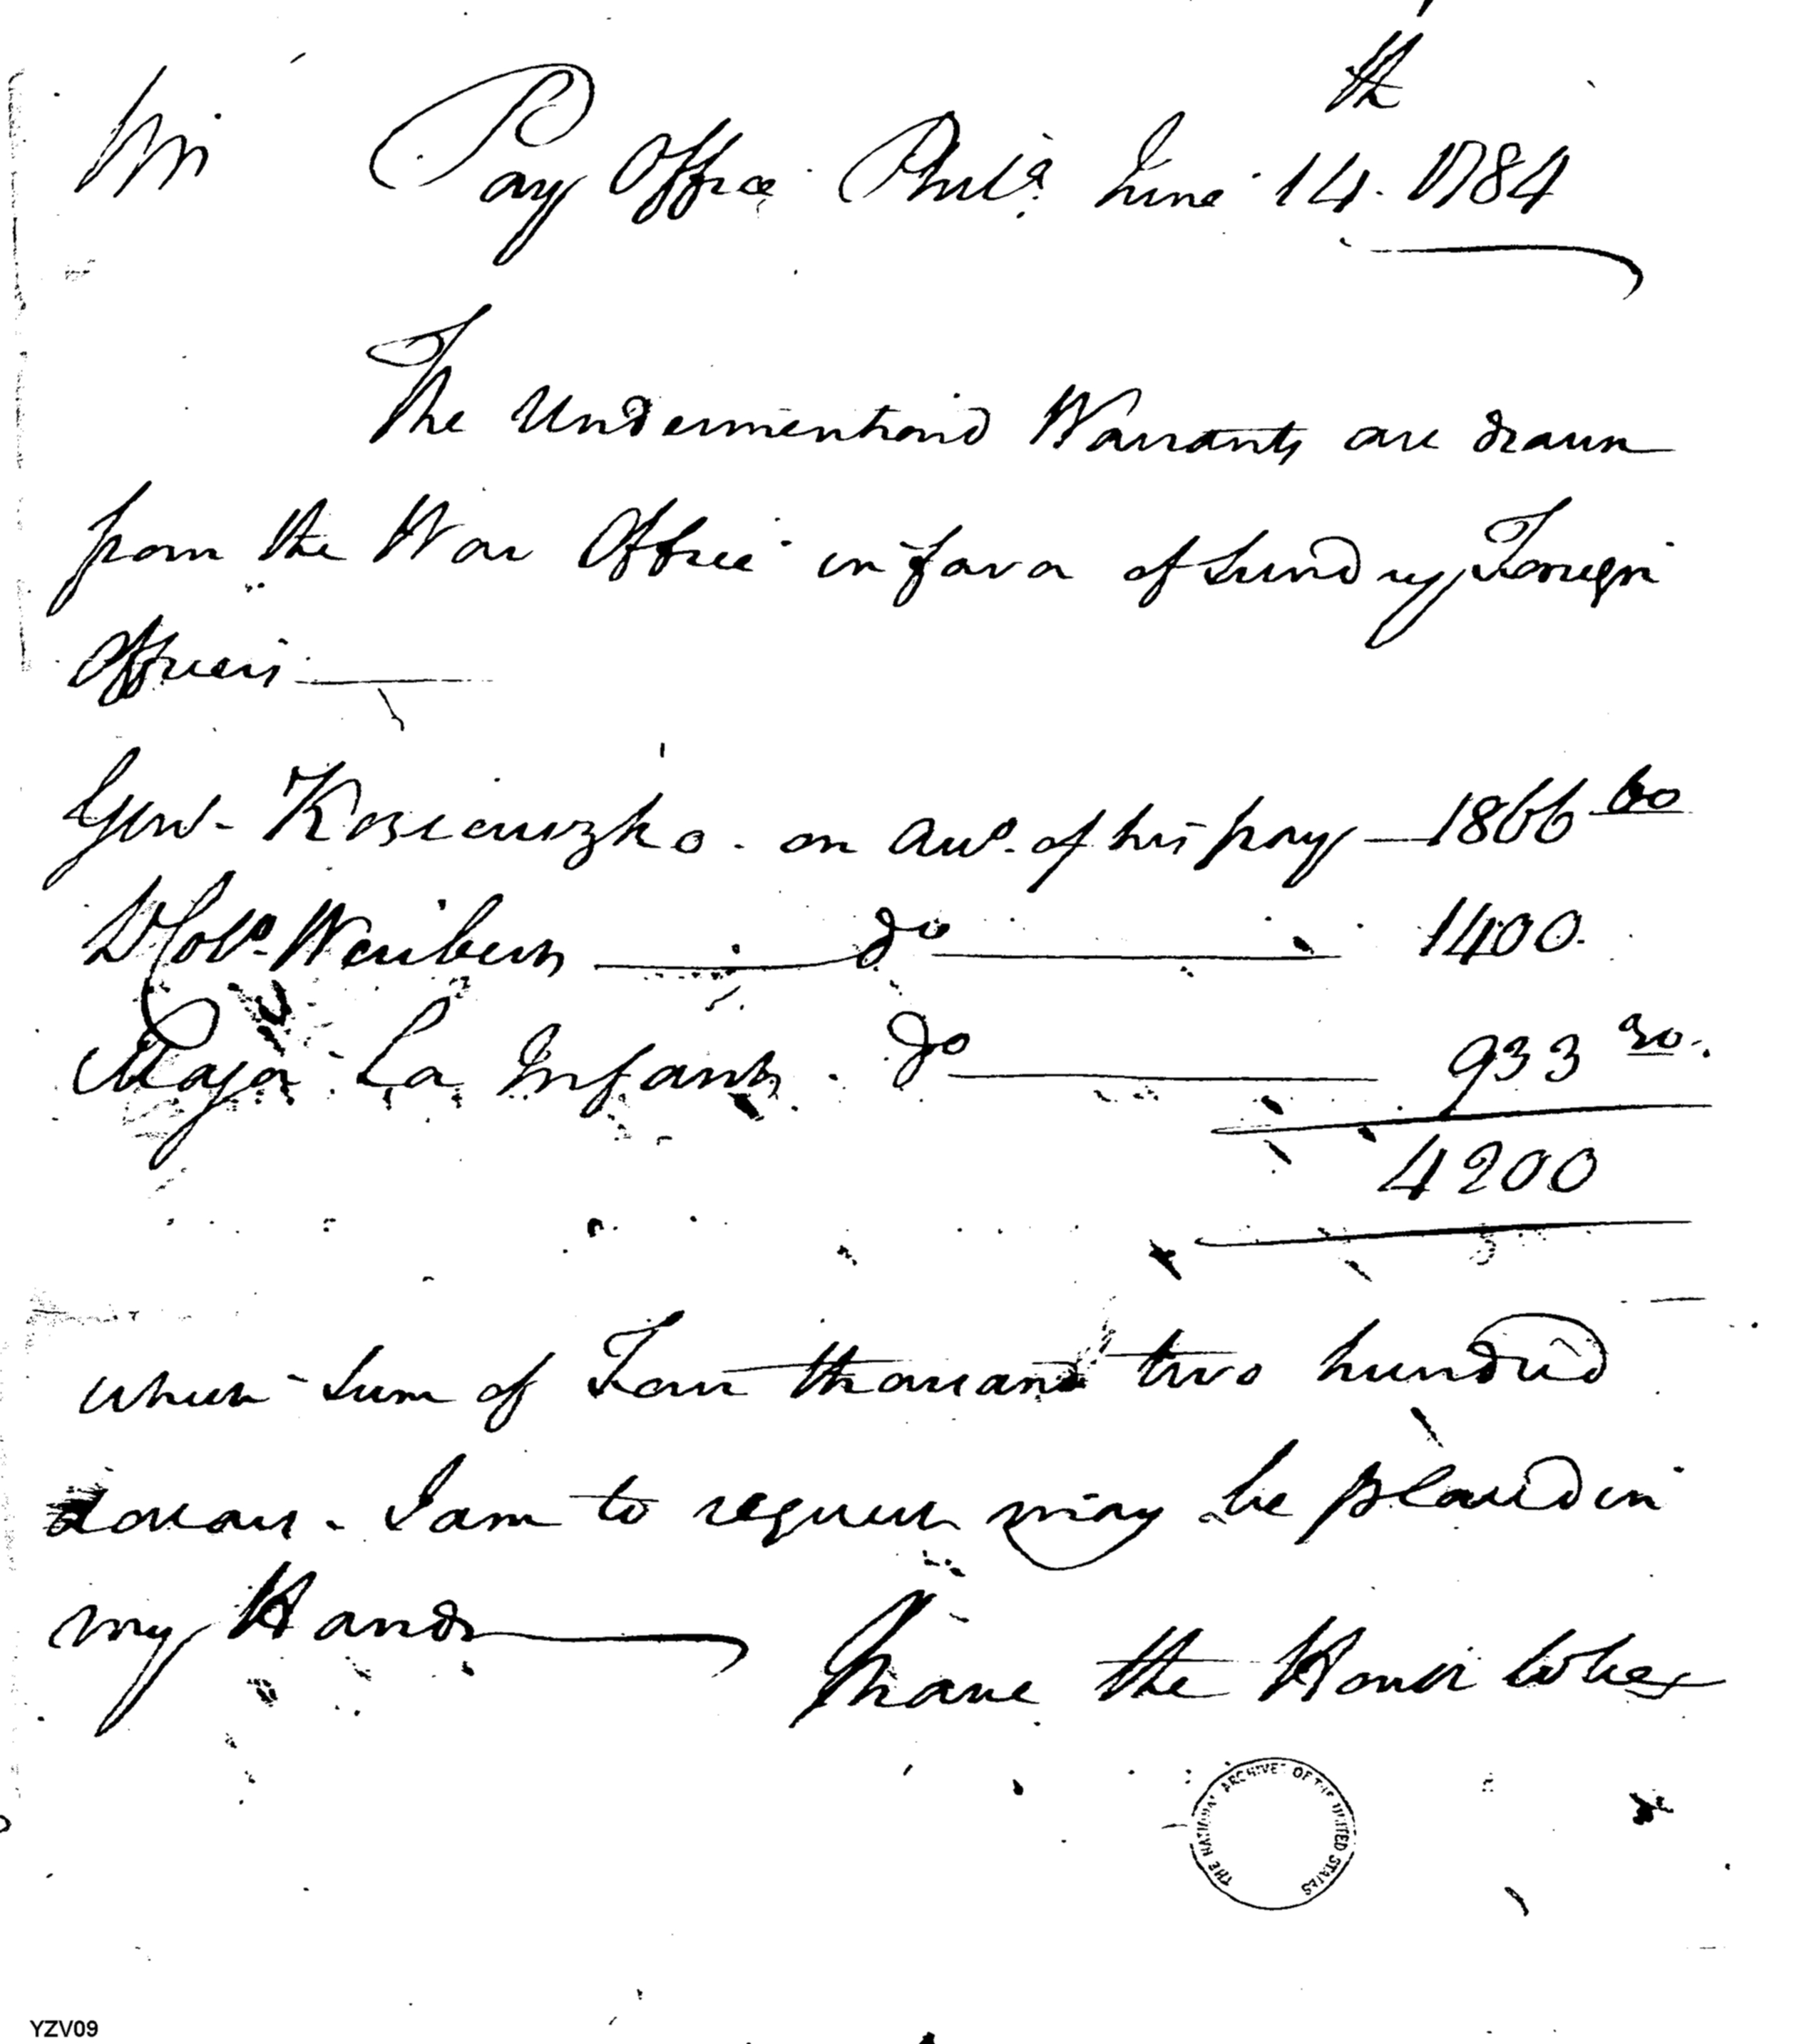 Sir Pay Office Phila. June 14th 1784
The Undermentiond Warrants are drawn
from the War Office in favor of Sundry Foreign
Officers
Genl. Kosciuszko. on acco. of his pay 1866 60
Lt Colo. Weibert do 1400
Major La Infant do 933 30
4200
which Sum of Four thousand two hundred
dollars. I am to request may be placed in
my Hands
I have the Honor to be &
THE NATIONAL ARCHIVES OF THE UNITED STATES
YZV09